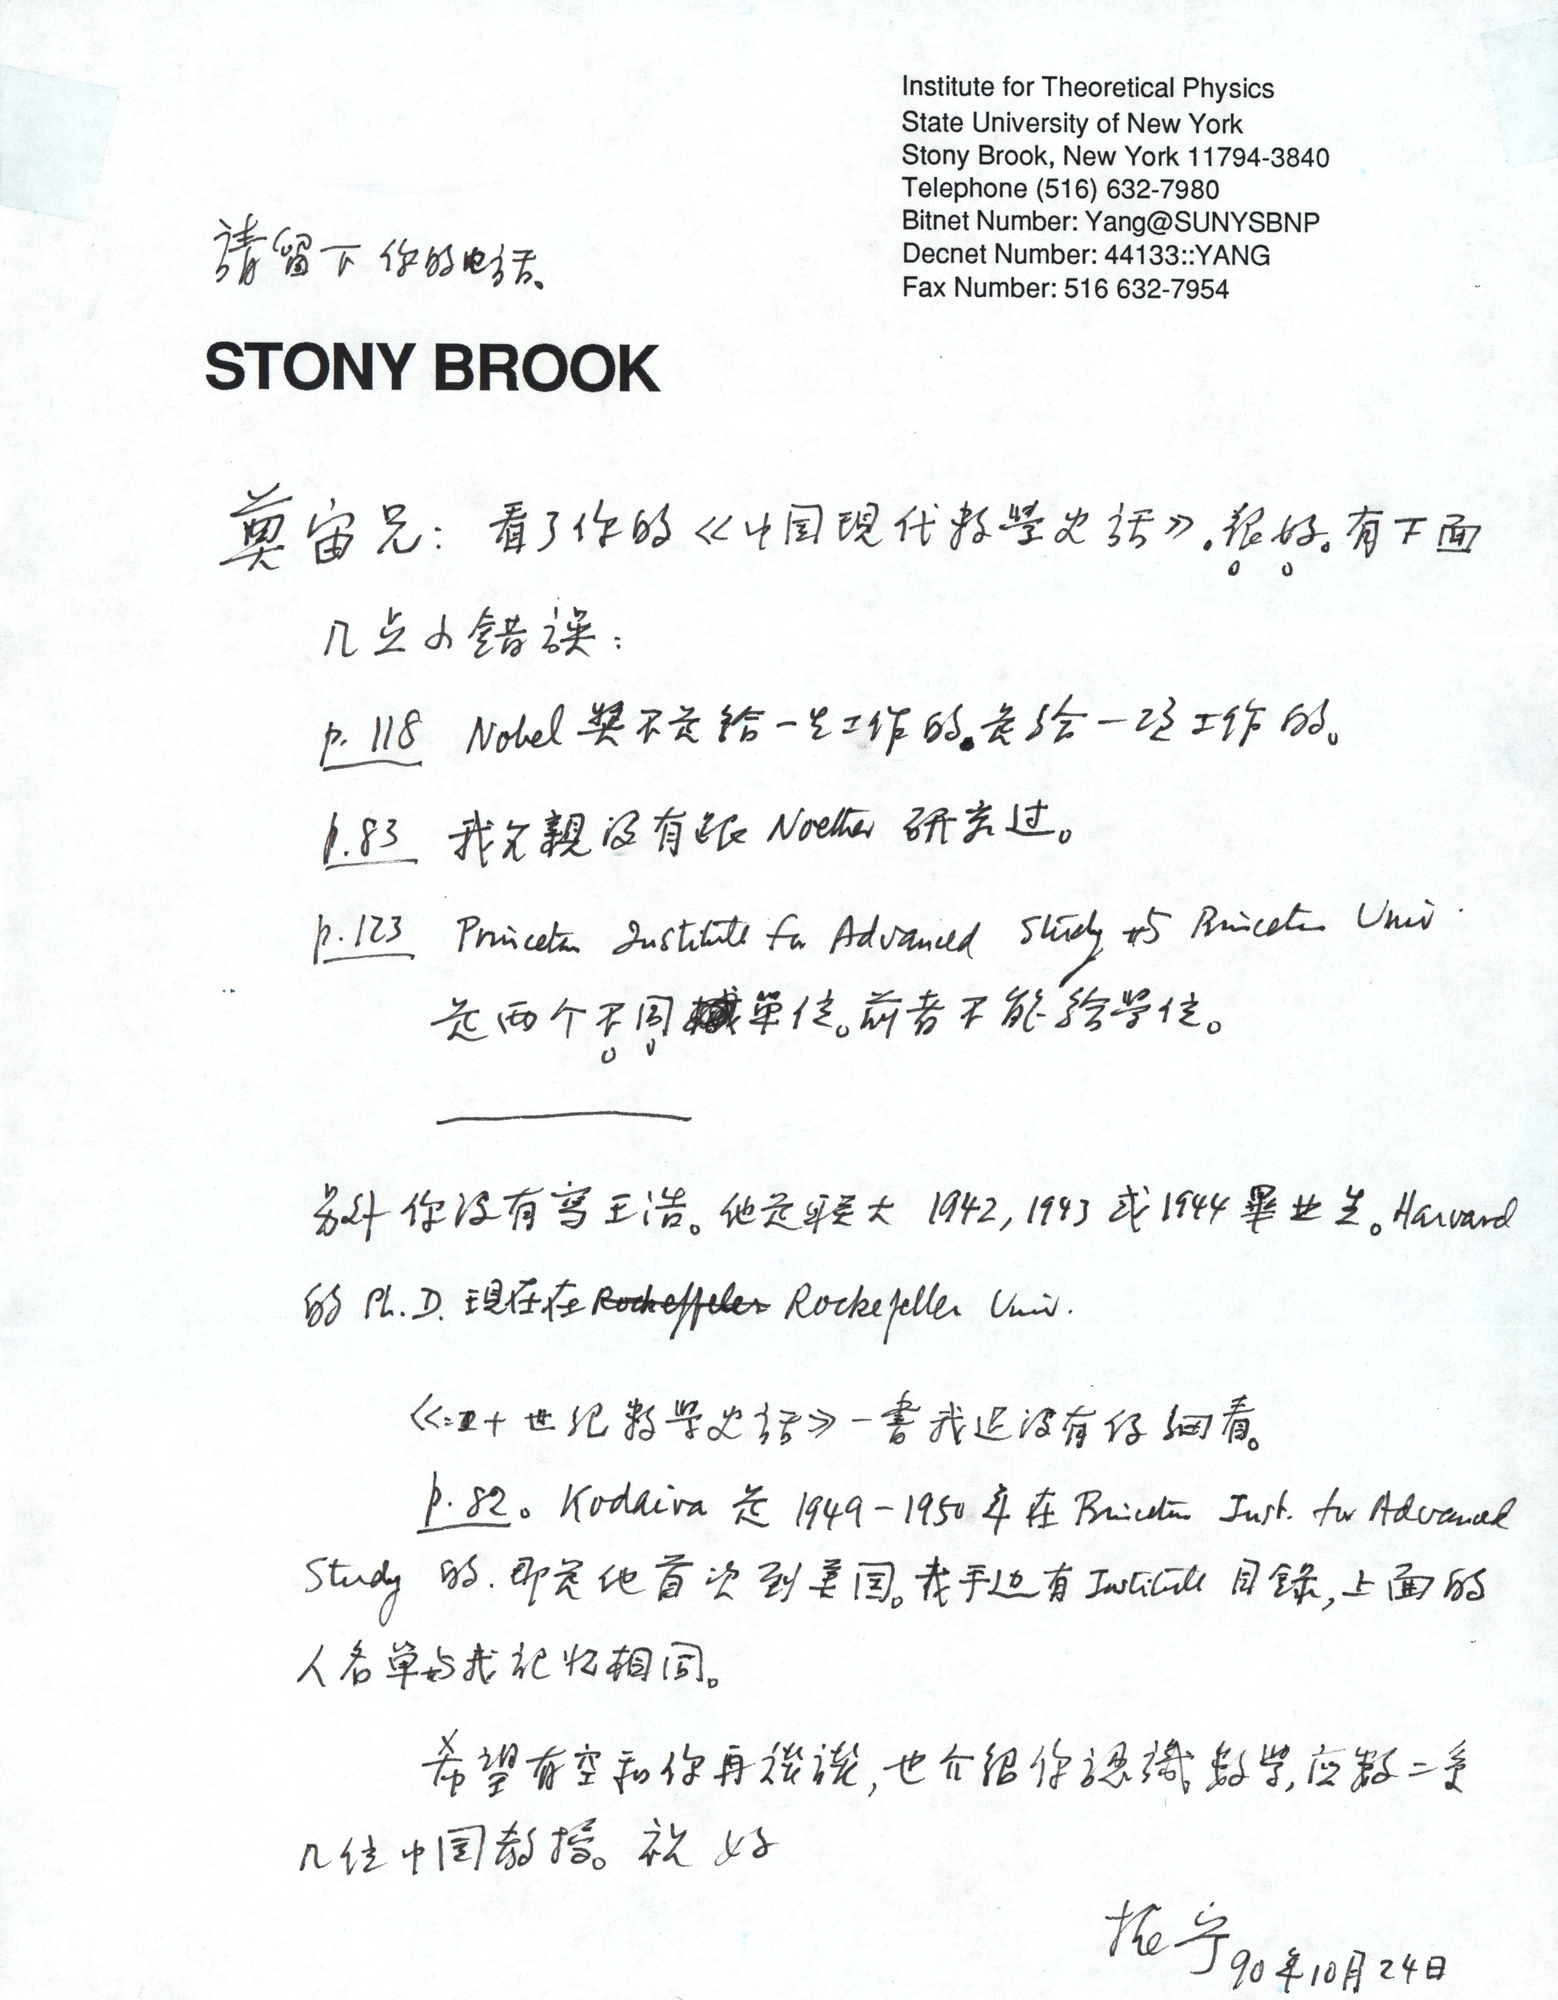 Institute for Theoretical Physics
State University of New York
Stony Brook, New York 11794-3840
Telephone (516) 632-7980
Bitnet Number: Yang@SUNYSBNP
Decnet Number: 44133::YANG
Fax Number: 516 632-7954
請留下你的电话。
STONY BROOK
奠宙兄：看了你的《中国現代数学史话》.很好。有下面
几点小錯誤：
p. 118 Nobel 奬不是給一生工作的。是给一项工作的。
p.83 我父親没有跟 Noether 研究过。
p.123 Princeton Institute for Advanced Study 与 Princeton Univ.
是两个不同單位。前者不能給学位。
另外你没有写王浩。他是联大 1942, 1943 或 1944 畢业生。Harvard
的 Ph.D. 現在在 Rockeffeler Rockefeller Univ.
《二十世纪数学史话》一書我还没有仔细看。
p. 82。Kodaira 是 1949-1950 年在 Princeton Inst. for Advanced
Study 的. 即是他首次到美国。我手边有 Institute 目錄, 上面的
人名单与我记忆相同。
希望有空和你再谈谈, 也介绍你認識数学, 应数二系
几位中国教授。祝 好
振宁 90年10月24日